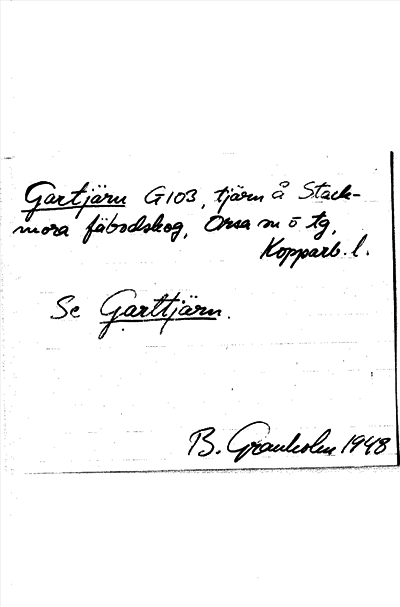 Gartjärn G103, tjärn å Stack-
mora fäbodskog, Orsa sn ö tg,
Kopparb. l.
Se Garttjärn.
B. Granholm 1948